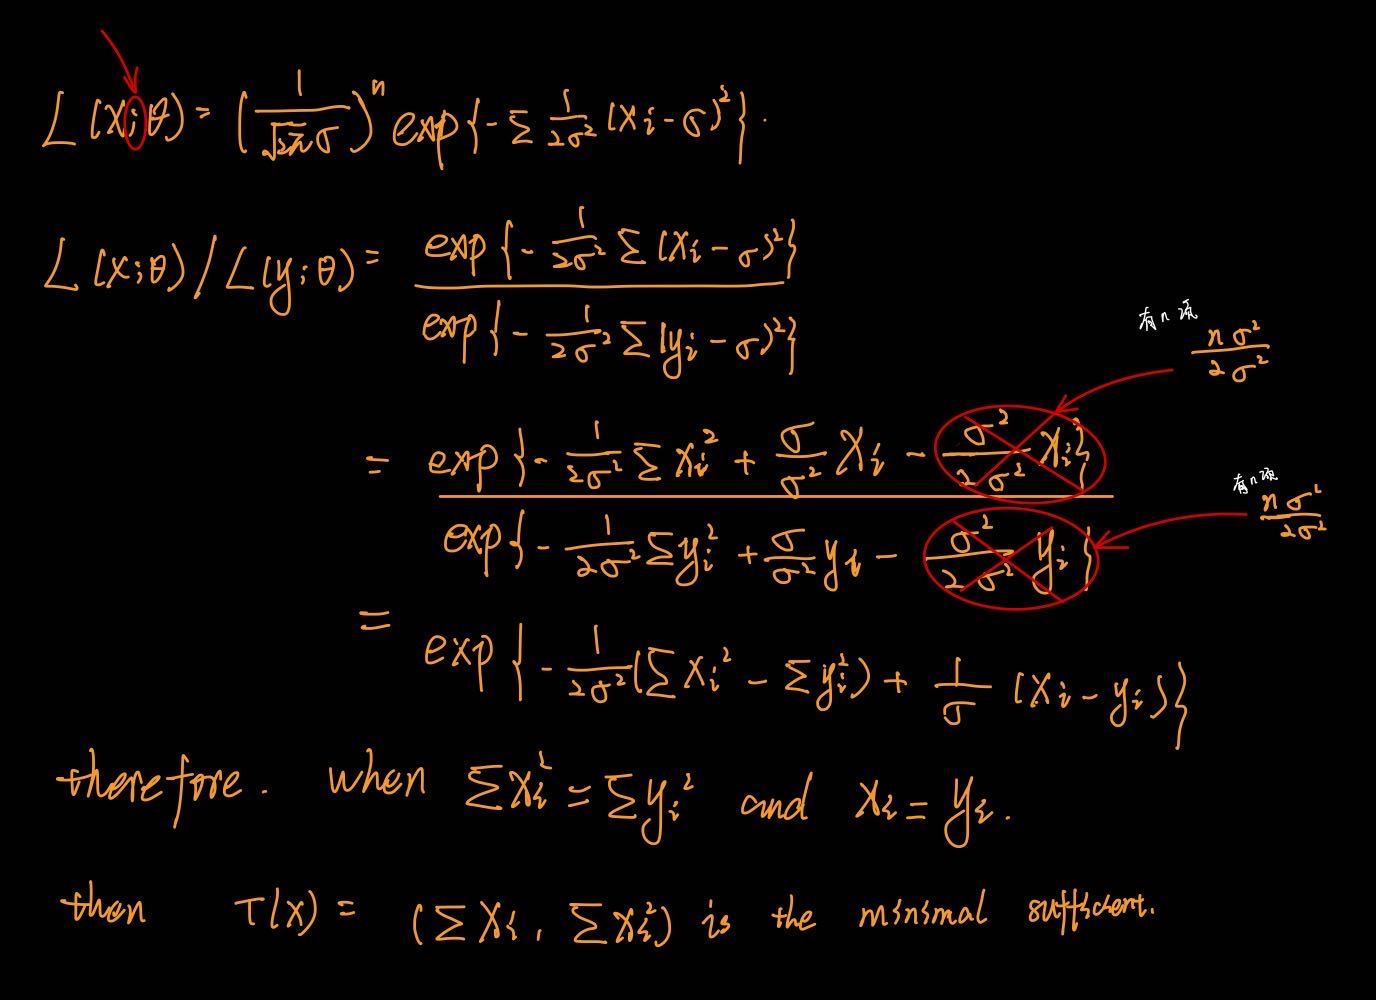 L(x;θ) = (1/√2π σ)^n exp{-Σ 1/2σ² (xi-σ)²}.
L(x;θ)/L(y;θ) = exp{-1/2σ² Σ(xi-σ)²} / exp{-1/2σ² Σ(yi-σ)²}
有n项
nσ²/2σ²
= exp{-1/2σ² Σxi² + σ/σ² xi - σ²/2σ² xi} / exp{-1/2σ² Σyi² + σ/σ² yi - σ²/2σ² yi}
有n项
nσ²/2σ²
= exp{-1/2σ² (Σxi² - Σyi²) + 1/σ (xi - yi)}
therefore. when Σxi² = Σyi² and xi = yi.
then T(x) = (Σxi, Σxi²) is the minimal sufficient.